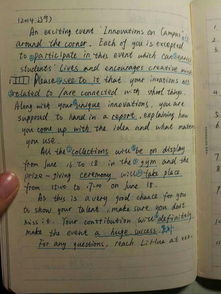 An exciting event 'Innovations on Campus' is
around the corner. Each of you is excepted
to participate in this event which can enrich
students' lives and encourages creative minds.
Please see to it that your invations are
related to / are connected with school things.
Along with your unique innovations, you are
supposed to hand in a report, explaining how
you come up with the idea and what makes
you use.
All the collections will be on display
from June 16 to 18 in the gym and the
prize-giving ceremony will take place
from 15:00 to 17:00 on June 18.
As this is a very good chance for you
to show your talent, make sure you don't
miss it. Your constitution will definitely
make the event a huge success.
For any questions, reach LiHua at xxx.